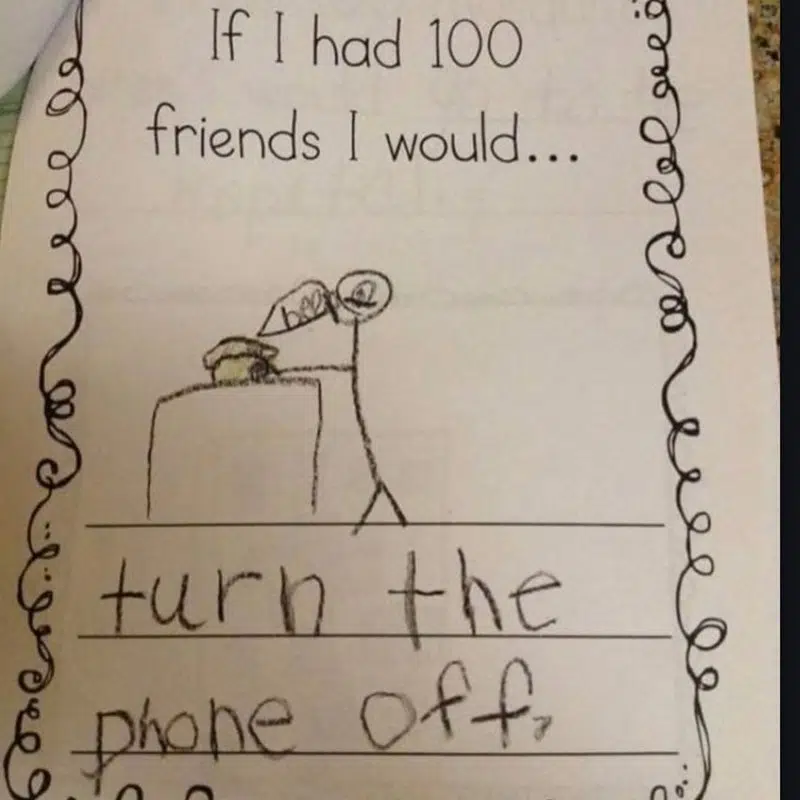 If I had 100
friends I would...
beep
turn the
phone off,